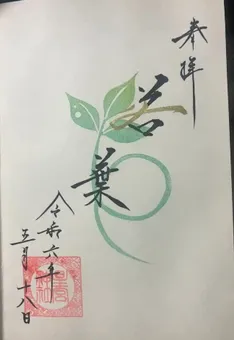 奉拝
若葉
令和六年
五月十八日